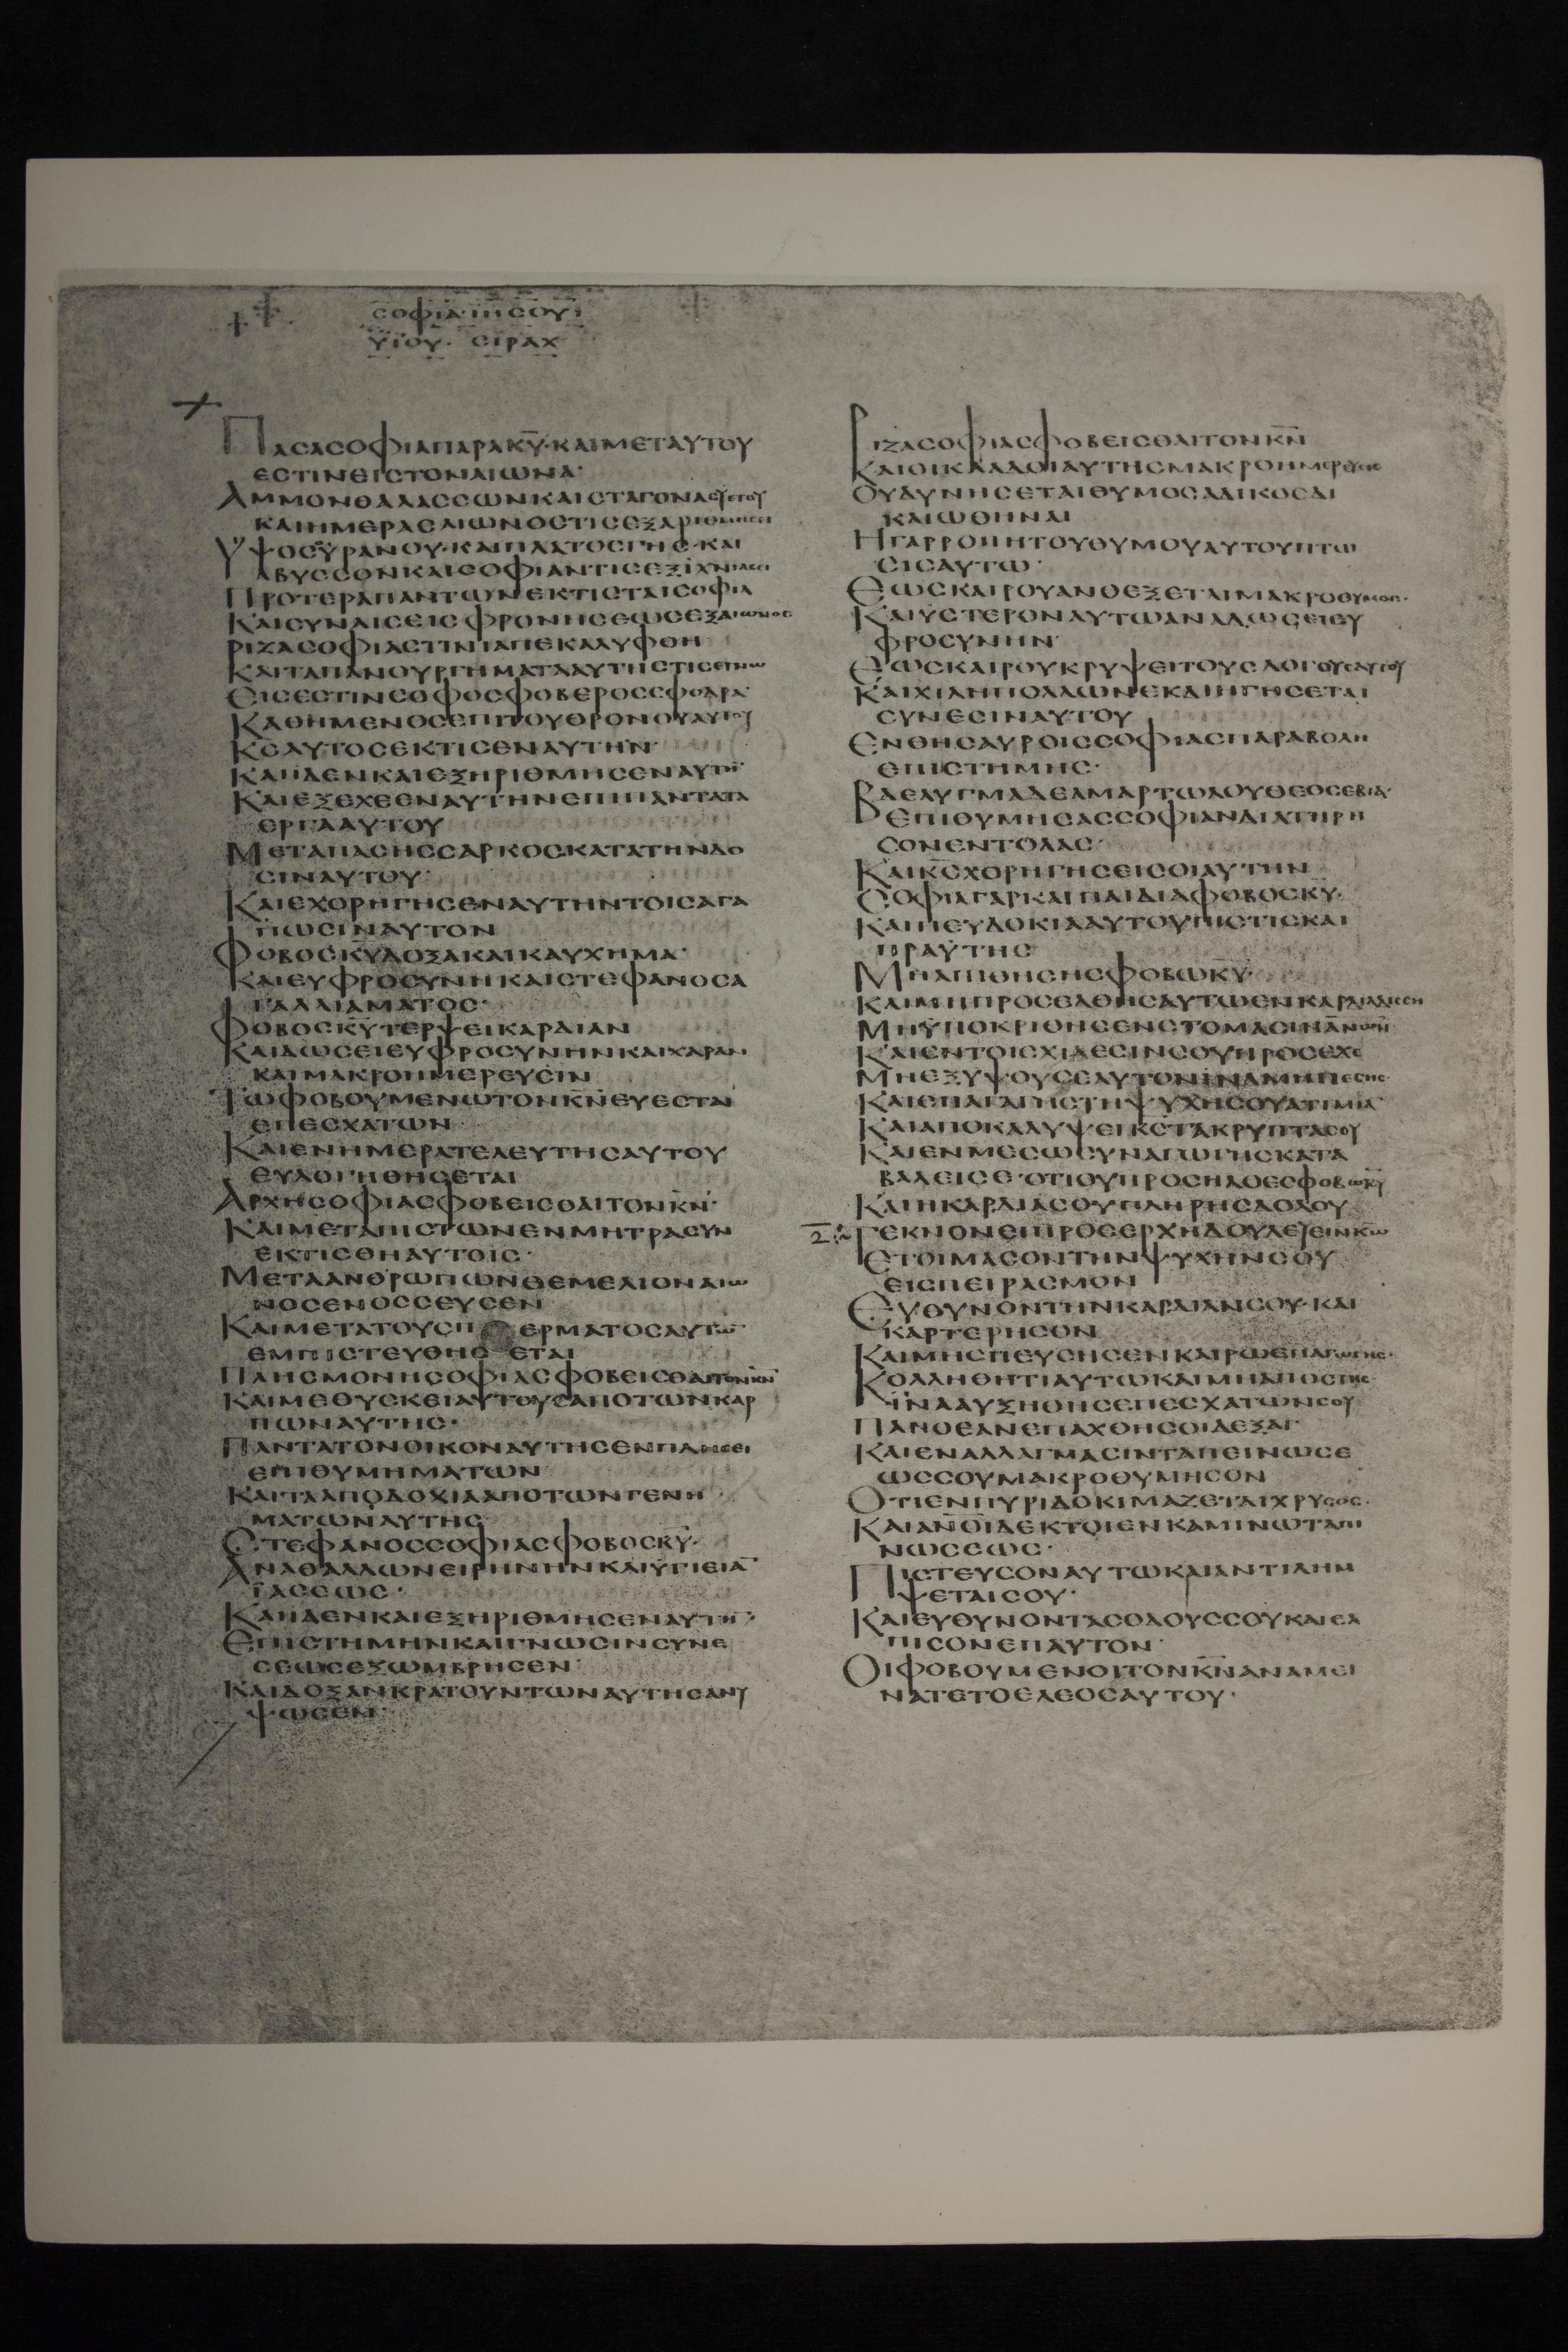 ϹΟΦΙΑ·ΙΗϹΟΥ:
ΥΪΟΥ· ϹΙΡΑΧ
ΠΑϹΑϹΟΦΙΑΠΑΡΑΚ̅Υ̅·ΚΑΙΜΕΤΑΥΤΟΥ
ΕϹΤΙΝΕΙϹΤΟΝΑΙΩΝΑ·
ΑΜΜΟΝΘΑΛΑϹϹΩΝΚΑΙϹΤΑΓΟΝΑϹΥΕΤΟΥ
ΚΑΙΗΜΕΡΑϹΑΙΩΝΟϹΤΙϹΕΞΑΡΙΘΜΗϹΕΙ
ΥΨΟϹΟΥΡΑΝΟΥ·ΚΑΙΠΛΑΤΟϹΓΗϹ·ΚΑΙ
ΑΒΥϹϹΟΝΚΑΙϹΟΦΙΑΝΤΙϹΕΞΙΧΝΙΑϹΕΙ
ΠΡΟΤΕΡΑΠΑΝΤΩΝΕΚΤΙϹΤΑΙϹΟΦΙΑ
ΚΑΙϹΥΝΑΙϹΕΙϹΦΡΟΝΗϹΕΩϹΕΞΑΙΩΝΟϹ
ΡΙΖΑϹΟΦΙΑϹΤΙΝΙΑΠΕΚΑΛΥΦΘΗ
ΚΑΙΤΑΠΑΝΟΥΡΓΗΜΑΤΑΑΥΤΗϹΤΙϹΕΓΝΩ
ΕΙϹΕϹΤΙΝϹΟΦΟϹΦΟΒΕΡΟϹϹΦΟΔΡΑ·
ΚΑΘΗΜΕΝΟϹΕΠΙΤΟΥΘΡΟΝΟΥΑΥΤΟΥ
Κ̅Ϲ̅ΑΥΤΟϹΕΚΤΙϹΕΝΑΥΤΗΝ·
ΚΑΙΙΔΕΝΚΑΙΕΞΗΡΙΘΜΗϹΕΝΑΥΤΗ̅·
ΚΑΙΕΞΕΧΕΕΝΑΥΤΗΝΕΠΙΠΑΝΤΑΤΑ
ΕΡΓΑΑΥΤΟΥ
ΜΕΤΑΠΑϹΗϹϹΑΡΚΟϹΚΑΤΑΤΗΝΔΟ
ϹΙΝΑΥΤΟΥ·
ΚΑΙΕΧΟΡΗΓΗϹΕΝΑΥΤΗΝΤΟΙϹΑΓΑ
ΠΩϹΙΝΑΥΤΟΝ
ΦΟΒΟϹΚ̅Υ̅ΔΟΞΑΚΑΙΚΑΥΧΗΜΑ·
ΚΑΙΕΥΦΡΟϹΥΝΗΚΑΙϹΤΕΦΑΝΟϹΑ
ΓΑΛΛΙΑΜΑΤΟϹ·
ΦΟΒΟϹΚ̅Υ̅ΤΕΡΨΕΙΚΑΡΔΙΑΝ
ΚΑΙΔΩϹΕΙΕΥΦΡΟϹΥΝΗΝΚΑΙΧΑΡΑΝ
ΚΑΙΜΑΚΡΟΗΜΕΡΕΥϹΙΝ
ΤΩΦΟΒΟΥΜΕΝΩΤΟΝΚ̅Ν̅ΕΥΕϹΤΑΙ
ΕΠΕϹΧΑΤΩΝ·
ΚΑΙΕΝΗΜΕΡΑΤΕΛΕΥΤΗϹΑΥΤΟΥ
ΕΥΛΟΓΗΘΗϹΕΤΑΙ
ΑΡΧΗϹΟΦΙΑϹΦΟΒΕΙϹΘΑΙΤΟΝΚ̅Ν̅·
ΚΑΙΜΕΤΑΠΙϹΤΩΝΕΝΜΗΤΡΑϹΥΝ
ΕΚΤΙϹΘΗΑΥΤΟΙϹ·
ΜΕΤΑΑΝΘΡΩΠΩΝΘΕΜΕΛΙΟΝΑΙΩ
ΝΟϹΕΝΟϹϹΕΥϹΕΝ
ΚΑΙΜΕΤΑΤΟΥϹΠ ΕΡΜΑΤΟϹΑΥΤΩ̅·
ΕΜΠΙϹΤΕΥΘΗϹ ΕΤΑΙ
ΠΛΗϹΜΟΝΗϹΟΦΙΑϹΦΟΒΕΙϹΘΑΙΤΟΝΚ̅Ν̅
ΚΑΙΜΕΘΥϹΚΕΙΑΥΤΟΥϹΑΠΟΤΩΝΚΑΡ
ΠΩΝΑΥΤΗϹ·
ΠΑΝΤΑΤΟΝΟΙΚΟΝΑΥΤΗϹΕΝΠΛΗϹΕΙ
ΕΠΙΘΥΜΗΜΑΤΩΝ
ΚΑΙΤΑΑΠΟΔΟΧΙΑΑΠΟΤΩΝΓΕΝΗ
ΜΑΤΩΝΑΥΤΗϹ
ϹΤΕΦΑΝΟϹϹΟΦΙΑϹΦΟΒΟϹΚ̅Υ̅·
ΑΝΑΘΑΛΛΩΝΕΙΡΗΝΗΝΚΑΙΥΓΙΕΙΑ̅
ΙΑϹΕΩϹ·
ΚΑΙΙΔΕΝΚΑΙΕΞΗΡΙΘΜΗϹΕΝΑΥΤΗ̅·
ΕΠΙϹΤΗΜΗΝΚΑΙΓΝΩϹΙΝϹΥΝΕ
ϹΕΩϹΕΞΩΜΒΡΗϹΕΝ·
ΚΑΙΔΟΞΑΝΚΡΑΤΟΥΝΤΩΝΑΥΤΗϹΑΝΥ
ΨΩϹΕΝ·
ΡΙΖΑϹΟΦΙΑϹΦΟΒΕΙϹΘΑΙΤΟΝΚ̅Ν̅
ΚΑΙΟΙΚΛΑΔΟΙΑΥΤΗϹΜΑΚΡΟΗΜΕΡΕΥϹΙϹ
ΟΥΔΥΝΗϹΕΤΑΙΘΥΜΟϹΑΔΙΚΟϹΔΙ
ΚΑΙΩΘΗΝΑΙ
ΗΓΑΡΡΟΠΗΤΟΥΘΥΜΟΥΑΥΤΟΥΠΤΩ
ϹΙϹΑΥΤΩ·
ΕΩϹΚΑΙΡΟΥΑΝΘΕΞΕΤΑΙΜΑΚΡΟΘΥΜΟϹ·
ΚΑΙΥϹΤΕΡΟΝΑΥΤΩΑΝΑΔΩϹΕΙΕΥ
ΦΡΟϹΥΝΗΝ·
ΕΩϹΚΑΙΡΟΥΚΡΥΨΕΙΤΟΥϹΛΟΓΟΥϹΑΥΤΟΥ
ΚΑΙΧΙΛΗΠΟΛΛΩΝΕΚΔΙΗΓΗϹΕΤΑΙ
ϹΥΝΕϹΙΝΑΥΤΟΥ
ΕΝΘΗϹΑΥΡΟΙϹϹΟΦΙΑϹΠΑΡΑΒΟΛΗ
ΕΠΙϹΤΗΜΗϹ·
ΒΔΕΛΥΓΜΑΔΕΑΜΑΡΤΩΛΟΥΘΕΟϹΕΒΙΑ·
ΕΠΙΘΥΜΗϹΑϹϹΟΦΙΑΝΔΙΑΤΗΡΗ
ϹΟΝΕΝΤΟΛΑϹ·
ΚΑΙΚ̅Ϲ̅ΧΟΡΗΓΗϹΕΙϹΟΙΑΥΤΗΝ
ϹΟΦΙΑΓΑΡΚΑΙΠΑΙΔΙΑΦΟΒΟϹΚ̅Υ̅·
ΚΑΙΗΕΥΔΟΚΙΑΑΥΤΟΥΠΙϹΤΙϹΚΑΙ
ΠΡΑΥΤΗϹ
ΜΗΑΠΙΘΗϹΗϹΦΟΒΩΚ̅Υ̅·
ΚΑΙΜΗΠΡΟϹΕΛΘΗϹΑΥΤΩΕΝΚΑΡΔΙΑΔΙϹϹΗ
ΜΗΫΠΟΚΡΙΘΗϹΕΝϹΤΟΜΑϹΙΝΑ̅Ν̅Ω̅Ν̅
ΚΑΙΕΝΤΟΙϹΧΙΛΕϹΙΝϹΟΥΠΡΟϹΕΧΕ
ΜΗΕΞΥΨΟΥϹΕΑΥΤΟΝΙΝΑΜΗΠΕϹΗϹ·
ΚΑΙΕΠΑΓΑΓΗϹΤΗΨΥΧΗϹΟΥΑΤΙΜΙΑ̅
ΚΑΙΑΠΟΚΑΛΥΨΕΙΚ̅Ϲ̅ΤΑΚΡΥΠΤΑϹΟΥ
ΚΑΙΕΝΜΕϹΩϹΥΝΑΓΩΓΗϹΚΑΤΑ
ΒΑΛΕΙϹΕ·ΟΤΙΟΥΠΡΟϹΗΛΘΕϹΦΟΒΩΚ̅Υ̅
ΚΑΙΗΚΑΡΔΙΑϹΟΥΠΛΗΡΗϹΔΟΛΟΥ
2 ΤΕΚΝΟΝΕΙΠΡΟϹΕΡΧΗΔΟΥΛΕΥΕΙΝΚ̅Ω̅
ΕΤΟΙΜΑϹΟΝΤΗΝΨΥΧΗΝϹΟΥ
ΕΙϹΠΕΙΡΑϹΜΟΝ
ΕΥΘΥΝΟΝΤΗΝΚΑΡΔΙΑΝϹΟΥ·ΚΑΙ
ΚΑΡΤΕΡΗϹΟΝ
ΚΑΙΜΗϹΠΕΥϹΗϹΕΝΚΑΙΡΩΕΠΑΓΩΓΗϹ·
ΚΟΛΛΗΘΗΤΙΑΥΤΩΚΑΙΜΗΑΠΟϹΤΗϹ·
ΪΝΑΑΥΞΗΘΗϹΕΠΕϹΧΑΤΩΝϹΟΥ
ΠΑΝΟΕΑΝΕΠΑΧΘΗϹΟΙΔΕΞΑΙ·
ΚΑΙΕΝΑΛΛΑΓΜΑϹΙΝΤΑΠΕΙΝΩϹΕ
ΩϹϹΟΥΜΑΚΡΟΘΥΜΗϹΟΝ
ΟΤΙΕΝΠΥΡΙΔΟΚΙΜΑΖΕΤΑΙΧΡΥϹΟϹ·
ΚΑΙΑ̅Ν̅Ο̅Ι̅ΔΕΚΤΟΙΕΝΚΑΜΙΝΩΤΑΠΙ
ΝΩϹΕΩϹ·
ΠΙϹΤΕΥϹΟΝΑΥΤΩΚΑΙΑΝΤΙΛΗΜ
ΨΕΤΑΙϹΟΥ·
ΚΑΙΕΥΘΥΝΟΝΤΑϹΟΔΟΥϹϹΟΥΚΑΙΕΛ
ΠΙϹΟΝΕΠΑΥΤΟΝ·
ΟΙΦΟΒΟΥΜΕΝΟΙΤΟΝΚ̅Ν̅ΑΝΑΜΕΙ
ΝΑΤΕΤΟΕΛΕΟϹΑΥΤΟΥ·